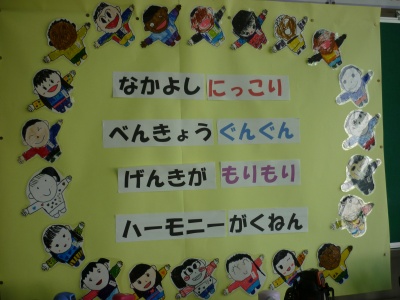 なかよし にっこり
べんきょう ぐんぐん
げんきが もりもり
ハーモニーがくねん